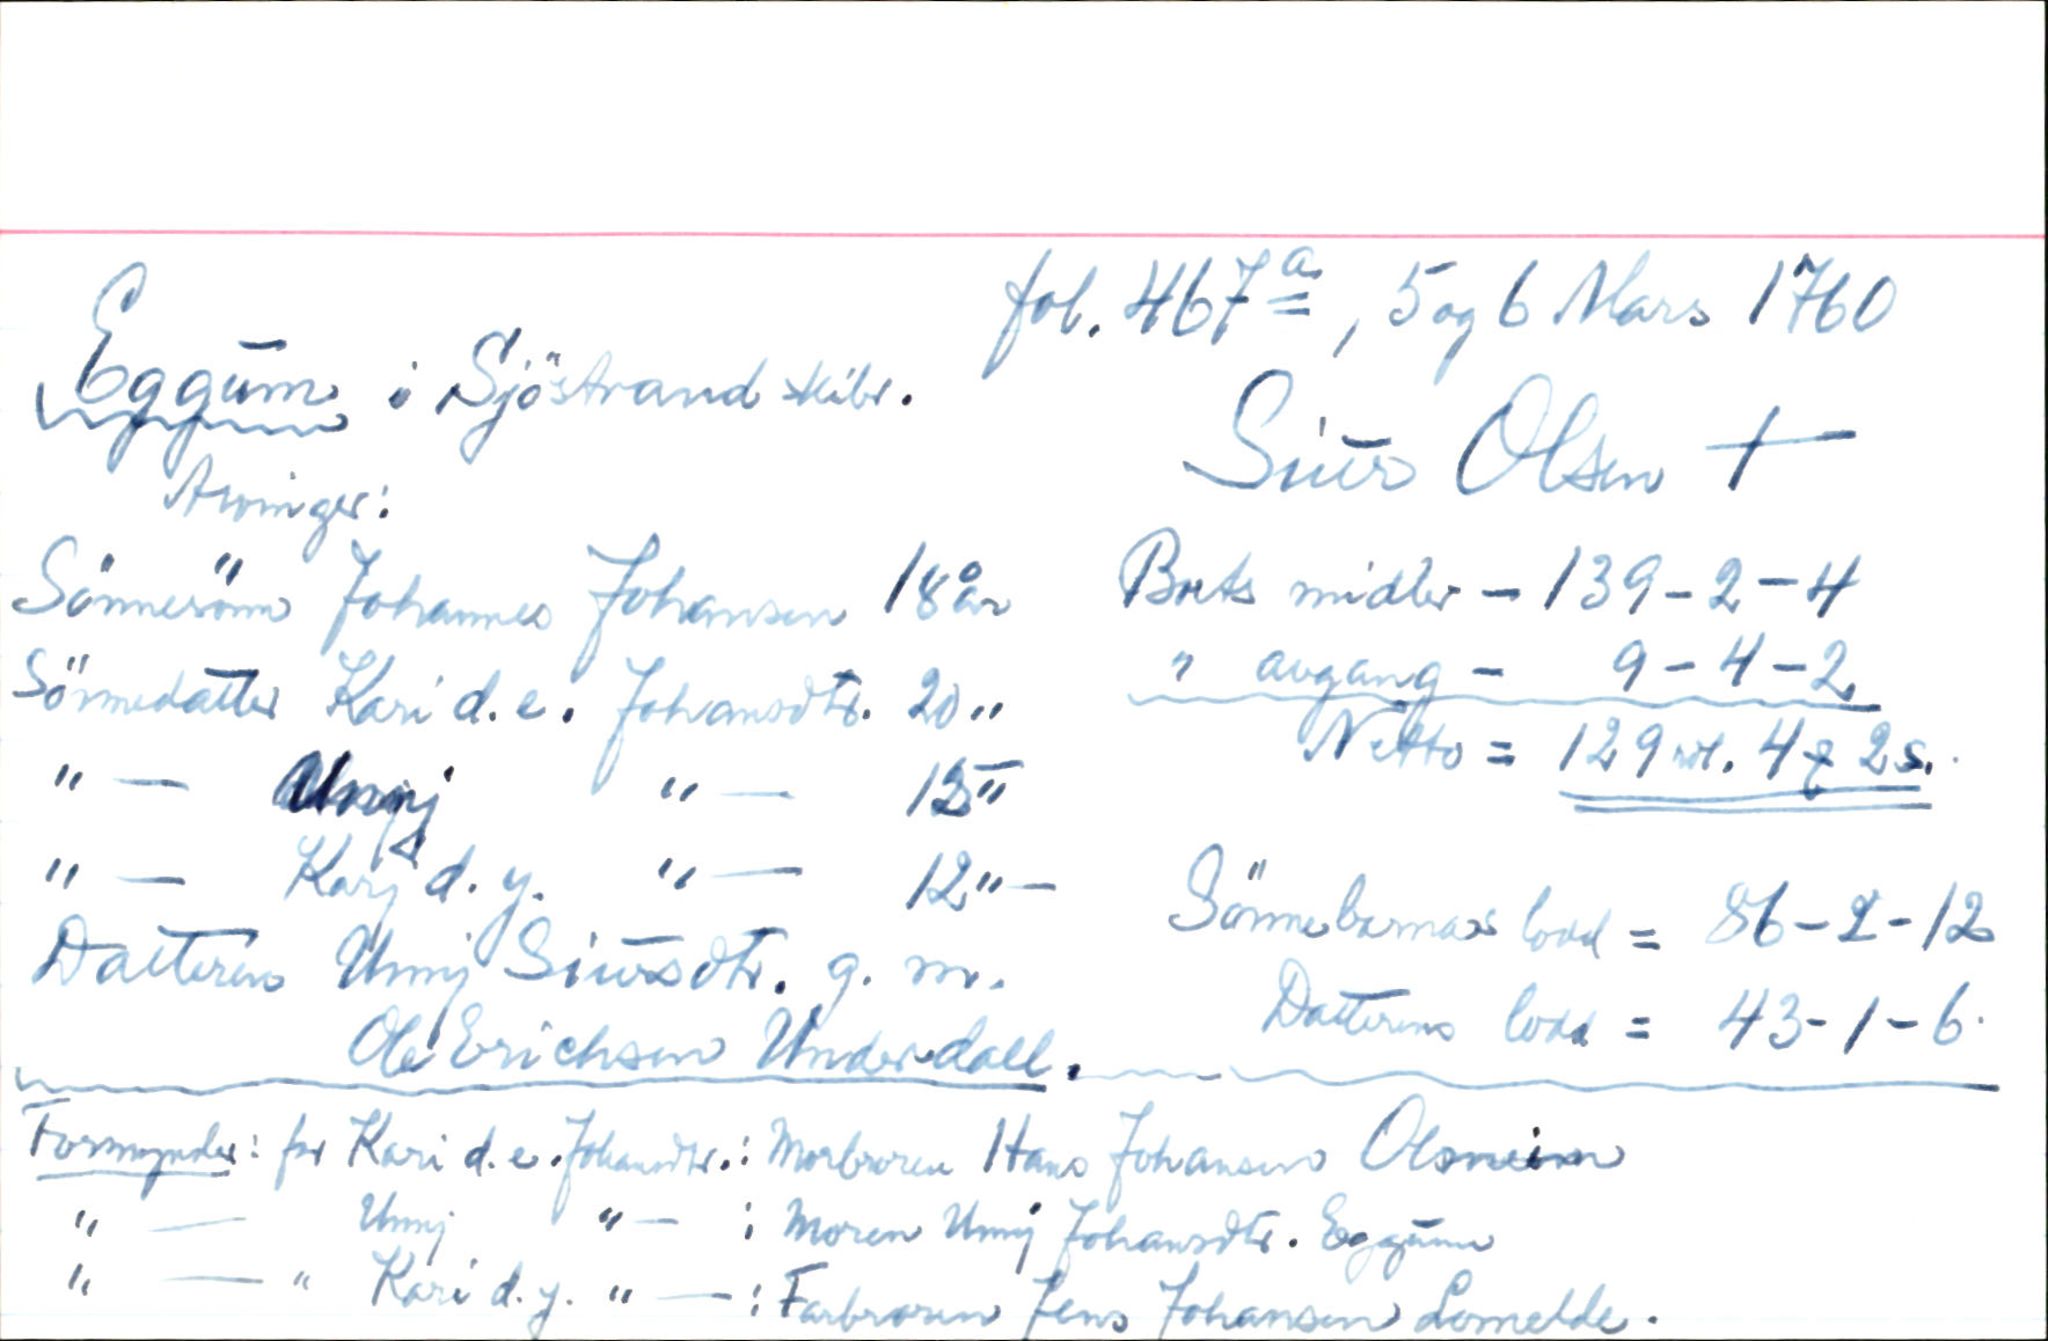 fol. 467a, 5 og 6 Mars 1760
Eggum i Sjöstrand skibr.
Siur Olsen +
Arvinger:
Sönnesönn Johannes Johansen 18 år
Boets midler - 139-2-4
Sönnedatter Kari d.e. Johansdtr. 20 "
" avgang - 9-4-2
" — Unnij " — 15 "
Netto = 129 rd. 4 ƒ 2 s.
" — Karj d.y. " — 12 " —
Sönnebarnas lodd = 86-2-12
Datteren Unnij Siursdtr. g. m.
Ole Erichsen Underdall.
Datterens lodd = 43-1-6.
Formynder: for Kari d.e. Johansdtr.: Morbroren Hans Johansen Olsneim
" — Unnij " — : Moren Unnij Johansdtr. Eggum
" — " Kari d.y. " — : Farbroren Jens Johansen Lomelde.